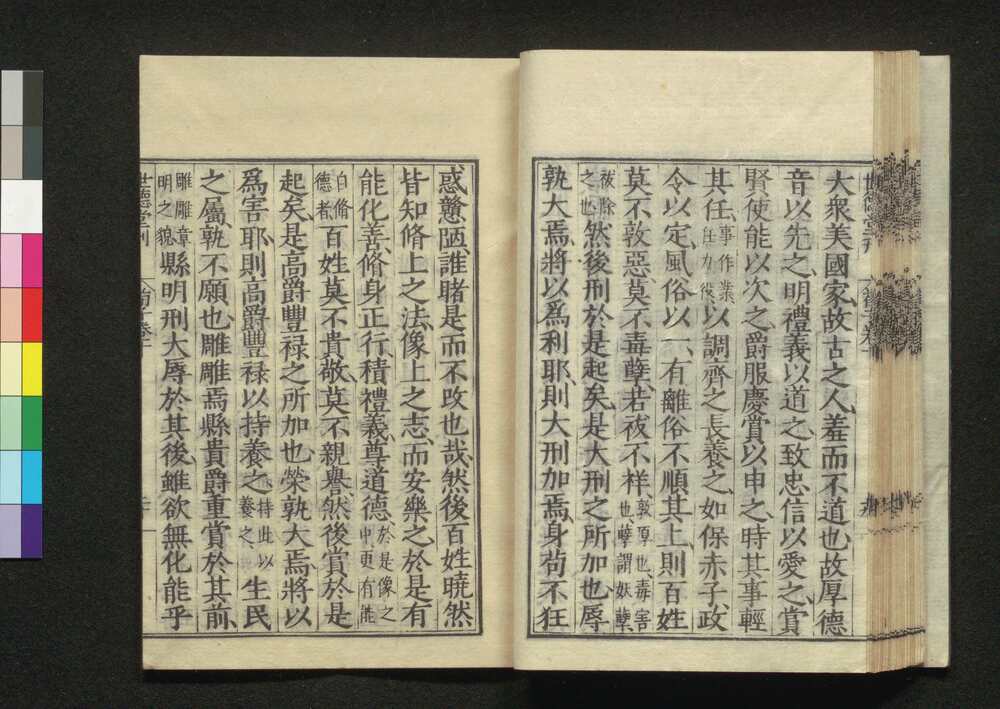 大衆美國家故古之人羞而不道也故厚德
音以先之明禮義以道之致忠信以愛之賞
賢使能以次之爵服慶賞以申之時其事輕
其任事作業任力役以調齊之長養之如保赤子政
令以定風俗以一有離俗不順其上則百姓
莫不敦惡莫不毒孽若祓不祥敦厚也毒害也孽謂妖孽
祓除之也然後刑於是起矣是大刑之所加也辱
孰大焉將以爲利耶則大刑加焉身苟不狂
惑戇陋誰睹是而不改也哉然後百姓曉然
皆知脩上之法像上之志而安樂之於是有
能化善脩身正行積禮義尊道德於是像之中更有能
自脩德者百姓莫不貴敬莫不親譽然後賞於是
起矣是高爵豐禄之所加也榮孰大焉將以
爲害耶則高爵豐禄以持養之持此以養之生民
之屬孰不願也雕雕焉縣貴爵重賞於其前
雕雕章明之貌縣明刑大辱於其後雖欲無化能乎
世德堂刊